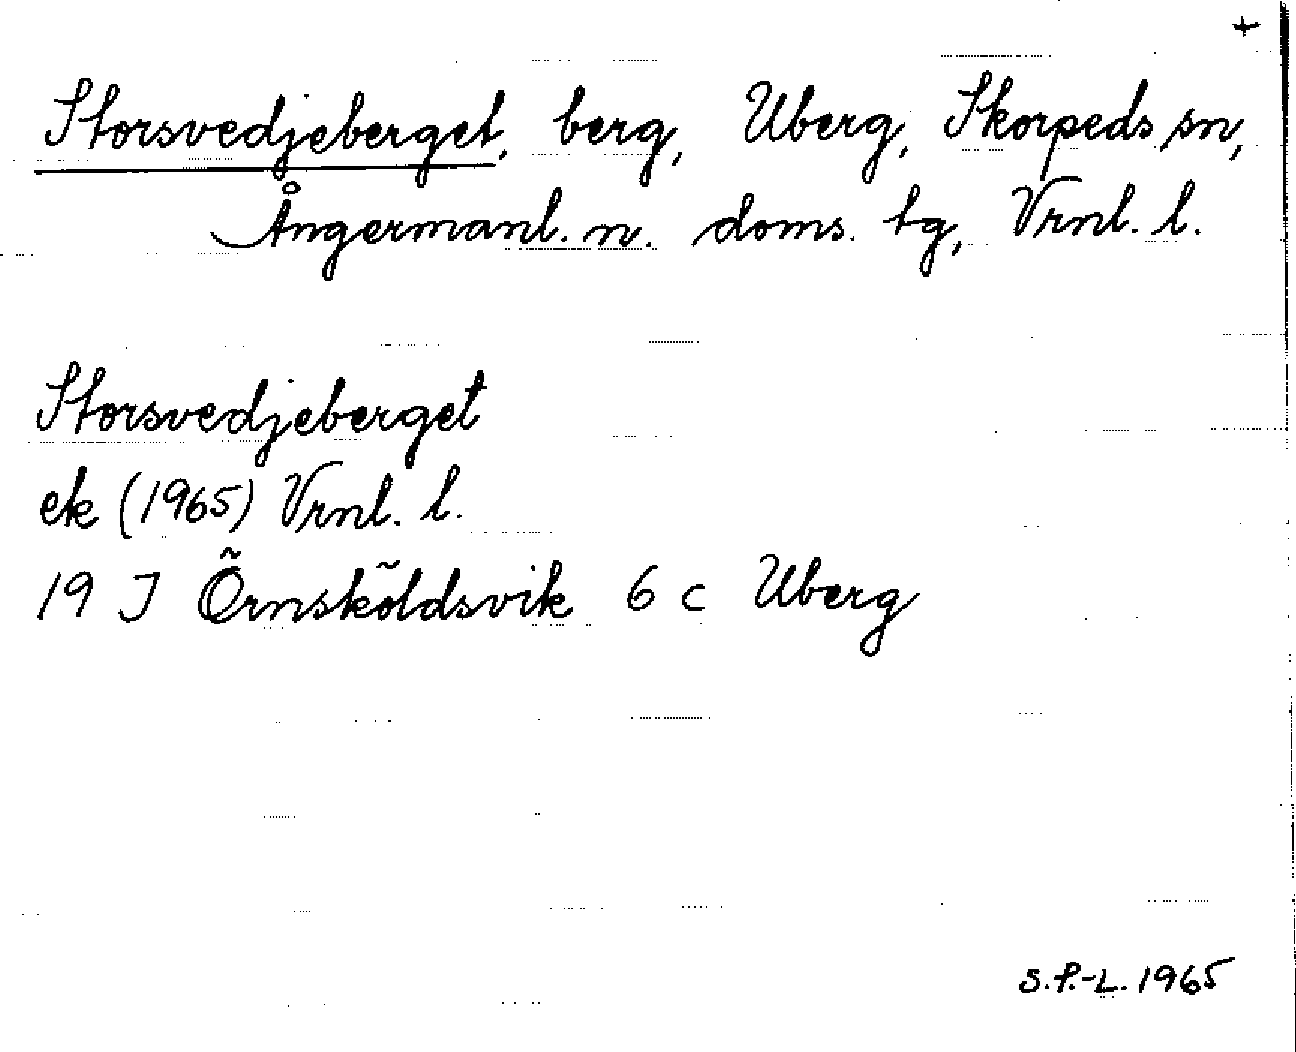 +
Storsvedjeberget, berg, Uberg, Skorpeds sn,
Ångermanl. n. doms. tg, Vrnl. l.
Storsvedjeberget
ek (1965) Vrnl. l.
19 J Örnsköldsvik 6 c Uberg
S.P.-L. 1965